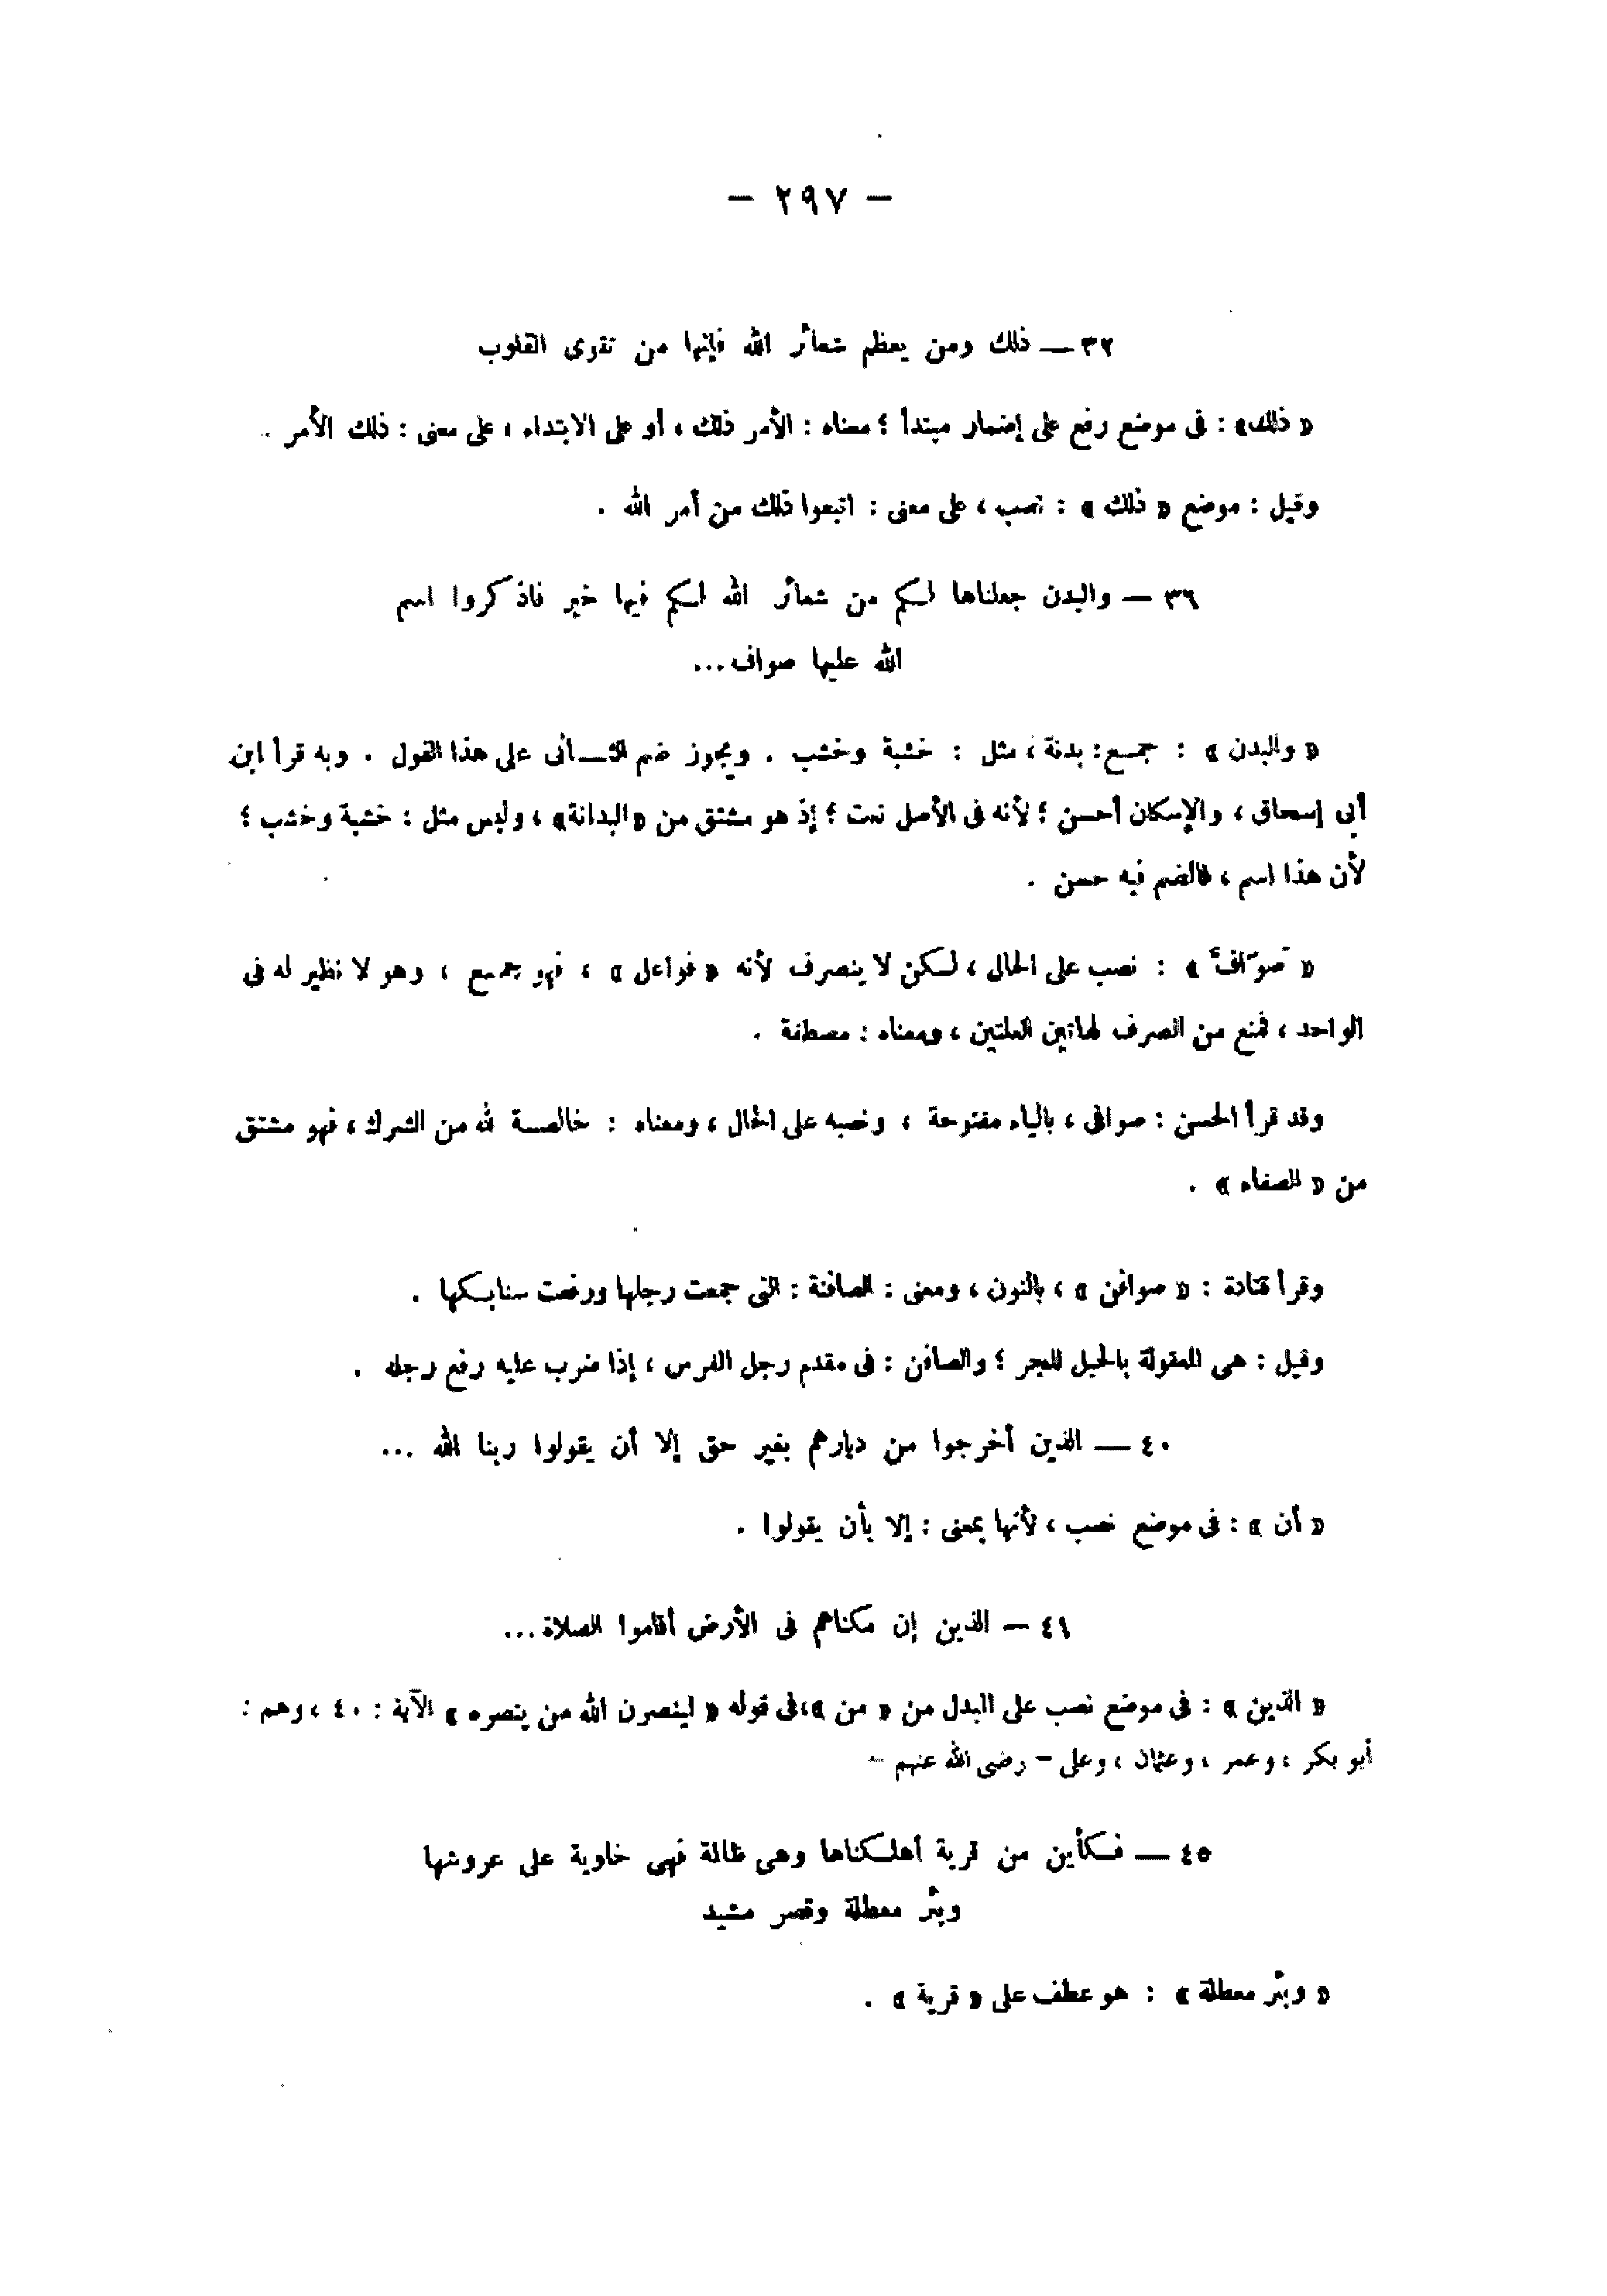 — ٢٩٧ —
٣٢ — ذلك ومن يعظم شعائر الله فإنها من تقوى القلوب
« ذلك» : فى موضع رفع على إضمار مبتدأ ؛ معناه : الأمر ذلك ، أو على الابتداء ، على معنى : ذلك الأمر .
وقيل : موضع « ذلك » : نصب ، على معنى : اتبعوا ذلك من أمر الله .
٣٦ — والبدن جعلناها لكم من شعائر الله لكم فيها خير فاذكروا اسم
الله عليها صواف...
« والبدن » : جمع : بدنة ، مثل : خشبة وخشب . ويجوز ضم الثانى على هذا القول . وبه قرأ ابن
أبى إسحاق ، والإسكان أحسن ؛ لأنه فى الأصل نعت ؛ إذ هو مشتق من «البدانة» ، وليس مثل : خشبة وخشب ؛
لأن هذا اسم ، فالضم فيه حسن .
« صوَافَّ » : نصب على الحال ، لكن لا ينصرف لأنه « فواعل » ، فهو جمع ، وهو لا نظير له فى
الواحد ، فمنع من الصرف لهاتين العلتين ، ومعناه : مصطفة .
وقد قرأ الحسن : صوافى ، بالياء مفتوحة ، ونصبه على الحال ، ومعناه : خالصة لله من الشرك ، فهو مشتق
من « الصفاء » .
وقرأ قتادة : « صوافن » ، بالنون ، ومعنى : الصافنة : التى جمعت رجلها ورفعت سنابكها .
وقيل : هى المعقولة بالحبل للنحر ؛ والصافن : فى مقدم رجل الفرس ، إذا ضرب عليه رفع رجله .
٤٠ — الذين أخرجوا من ديارهم بغير حق إلا أن يقولوا ربنا الله ...
« أن » : فى موضع نصب ، لأنها بمعنى : إلا بأن يقولوا .
٤١ — الذين إن مكناهم فى الأرض أقاموا الصلاة...
« الذين » : فى موضع نصب على البدل من « من »، فى قوله « لينصرن الله من ينصره » الآية : ٤٠ ، وهم :
أبو بكر ، وعمر ، وعثمان ، وعلى – رضى الله عنهم –
٤٥ — فكأين من قرية أهلكناها وهى ظالمة فهى خاوية على عروشها
وبئر معطلة وقصر مشيد
« وبئر معطلة » : هو عطف على « قرية » .